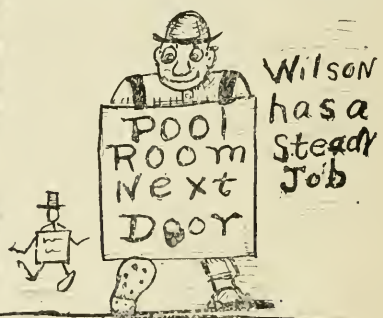 Pool
Room
Next
Door
Wilson
has a
Steady
Job